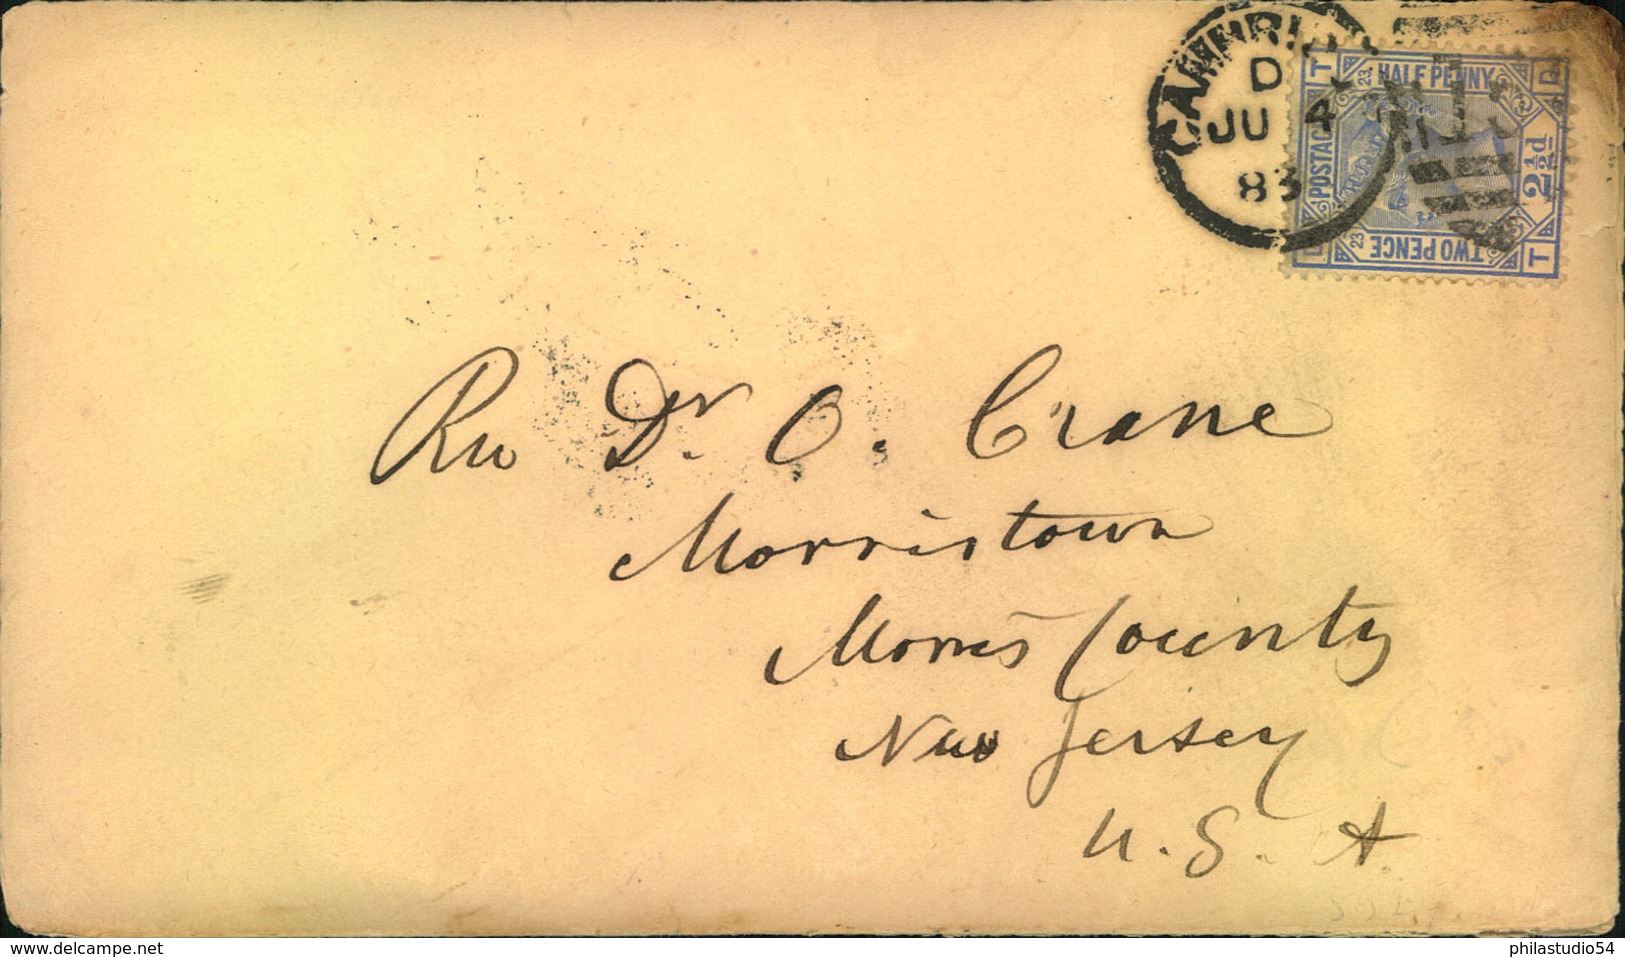 CAMBRID
D
JU 4
83
HALF PENNY
POSTAGE
TWO PENCE
2½d
T
D
T
23
23
Rev Dr. O. Crane
Morristown
Morris County
New Jersey
U. S. A
www.delcampe.net
philastudio54